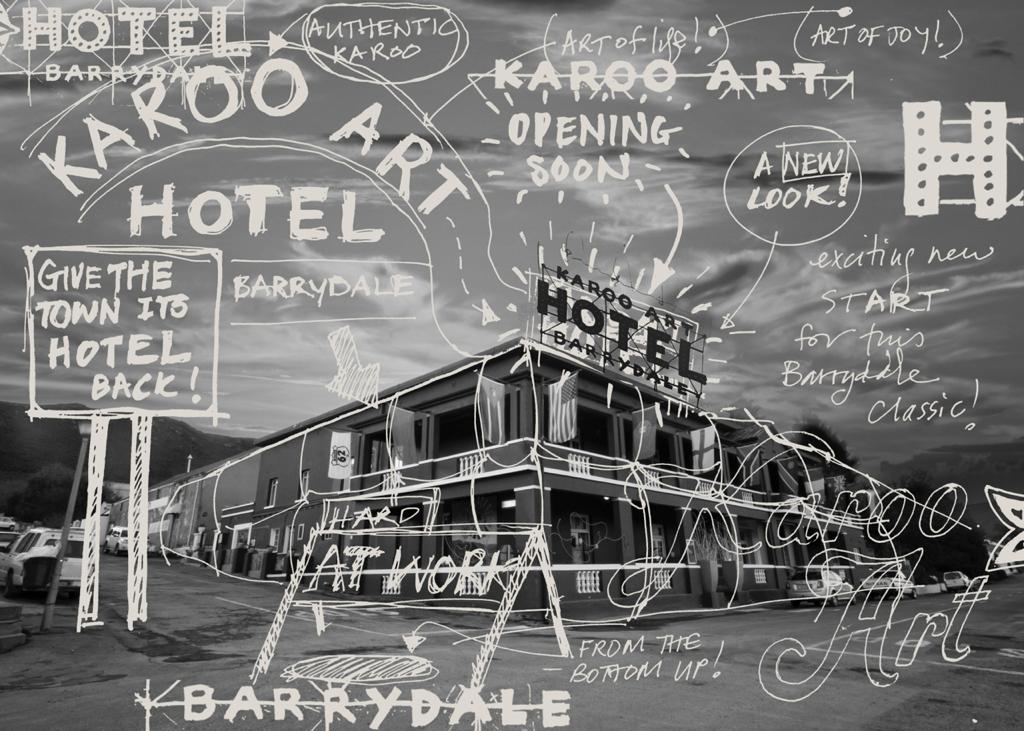 HOTEL
BARRYDALE
AUTHENTIC
KAROO
(ART of life!)
(ART OF JOY!)
KAROO ART
KAROO ART
OPENING
SOON
A NEW
LOOK!
H
HOTEL
BARRYDALE
GIVE THE
TOWN ITS
HOTEL
BACK!
exciting new
START
for this
Barrydale
classic!
KAROO ART
HOTEL
BARRYDALE
62
HARD
AT WORK
Karoo
Art
FROM THE
BOTTOM UP!
BARRYDALE